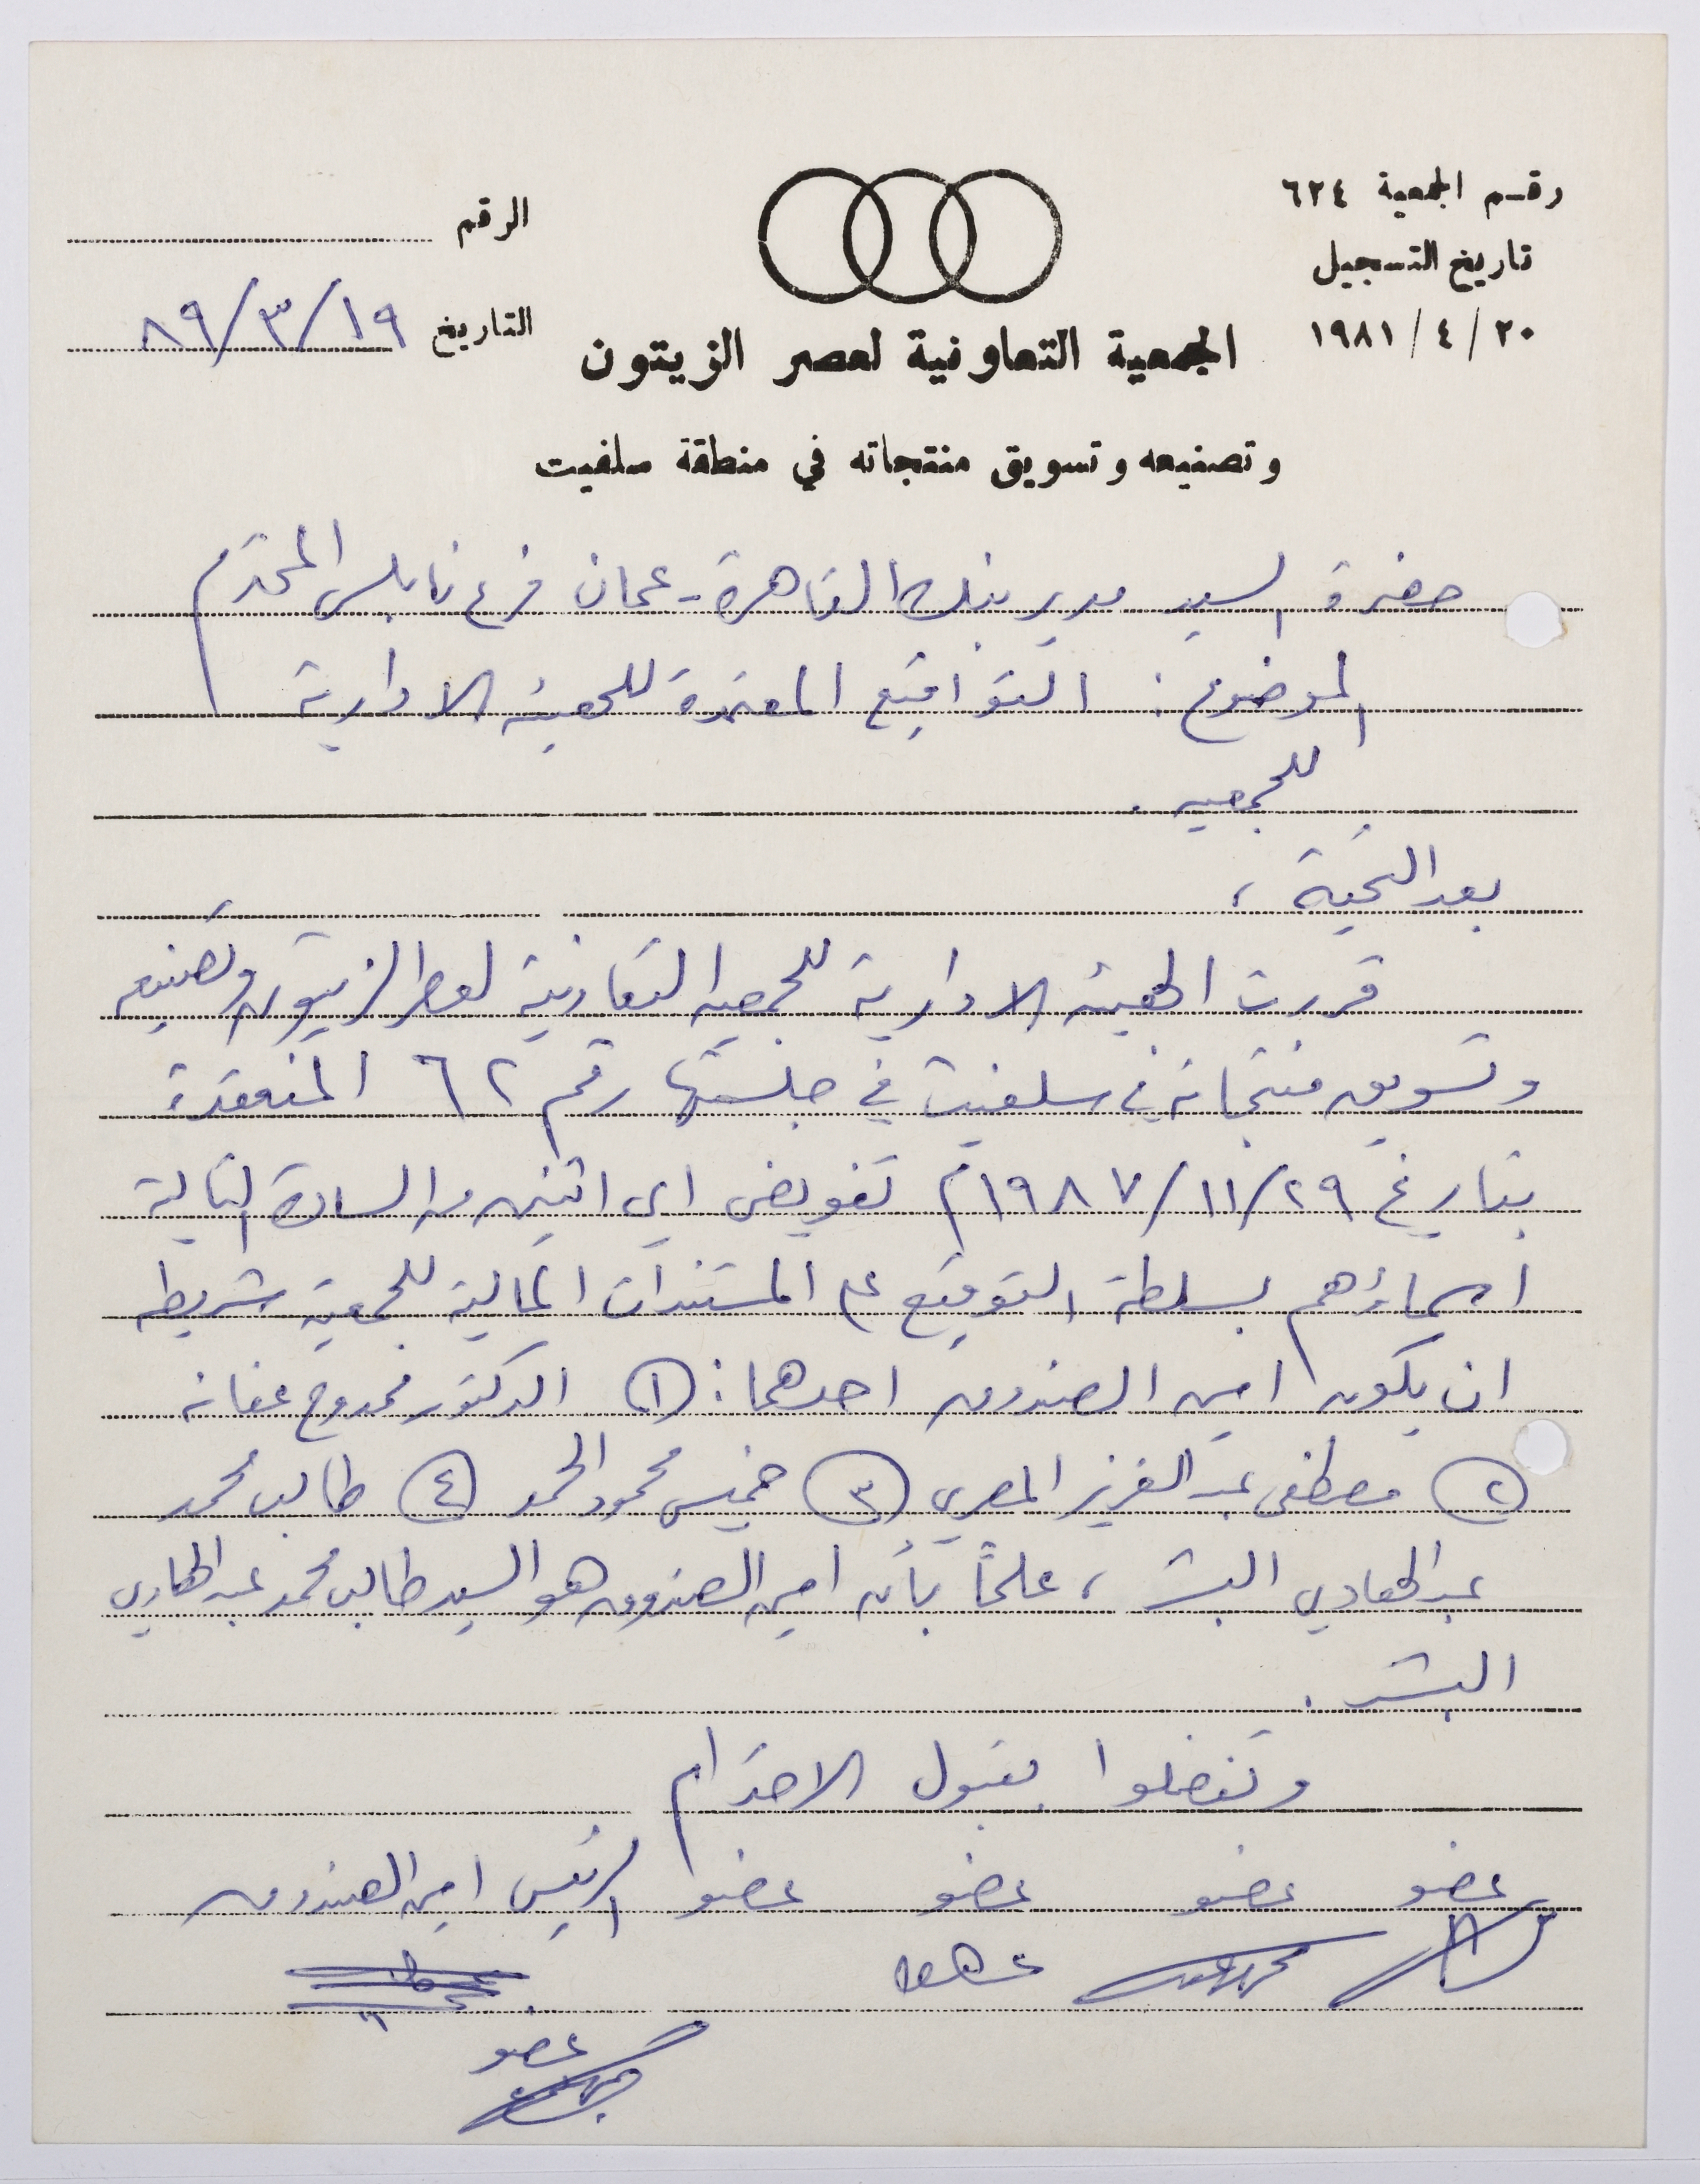 رقم الجمعية ٦٢٤
تاريخ التسجيل
٢٠ / ٤ / ١٩٨١
الرقم
التاريخ ١٩/٣/٨٩
الجمعية التعاونية لعصر الزيتون
وتصنيعه وتسويق منتجاته في منطقة سلفيت
حضرة السيد مدير بنك القاهرة - عمان فرع نابلس المحترم
الموضوع : التواقيع المعتمدة للهيئة الادارية
للجمعيه .
بعد التحية ،
قررت الهيئه الادارية للجمعيه التعاونية لعصر الزيتون وتصنيعه
وتسويق منتجاته في سلفيت في جلستها رقم ٦٢ المنعقدة
بتاريخ ٢٩/١١/١٩٨٧م تفويض اي اثنين من السادة التالية
اسماؤهم بسلطة التوقيع على المستندات المالية للجمعية شريطه
ان يكون امين الصندوق احدهما : ١ الدكتور ممدوح عفانه
٢ مصطفى عبد العزيز المصري ٣ خميس محمود الحمد ٤ طالب محمد
عبد الهادي البشر ، علماً بأن امين الصندوق هو السيد طالب محمد عبد الهادي
البشر .
وتفضلوا بقبول الاحترام
عضو عضو عضو عضو الرئيس امين الصندوق
عضو